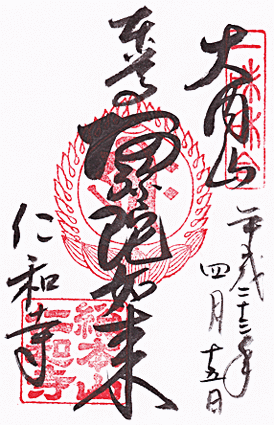 大内山
平成二十三年
四月十五日
本尊
阿弥陀如来
仁和寺
総本山
仁和寺